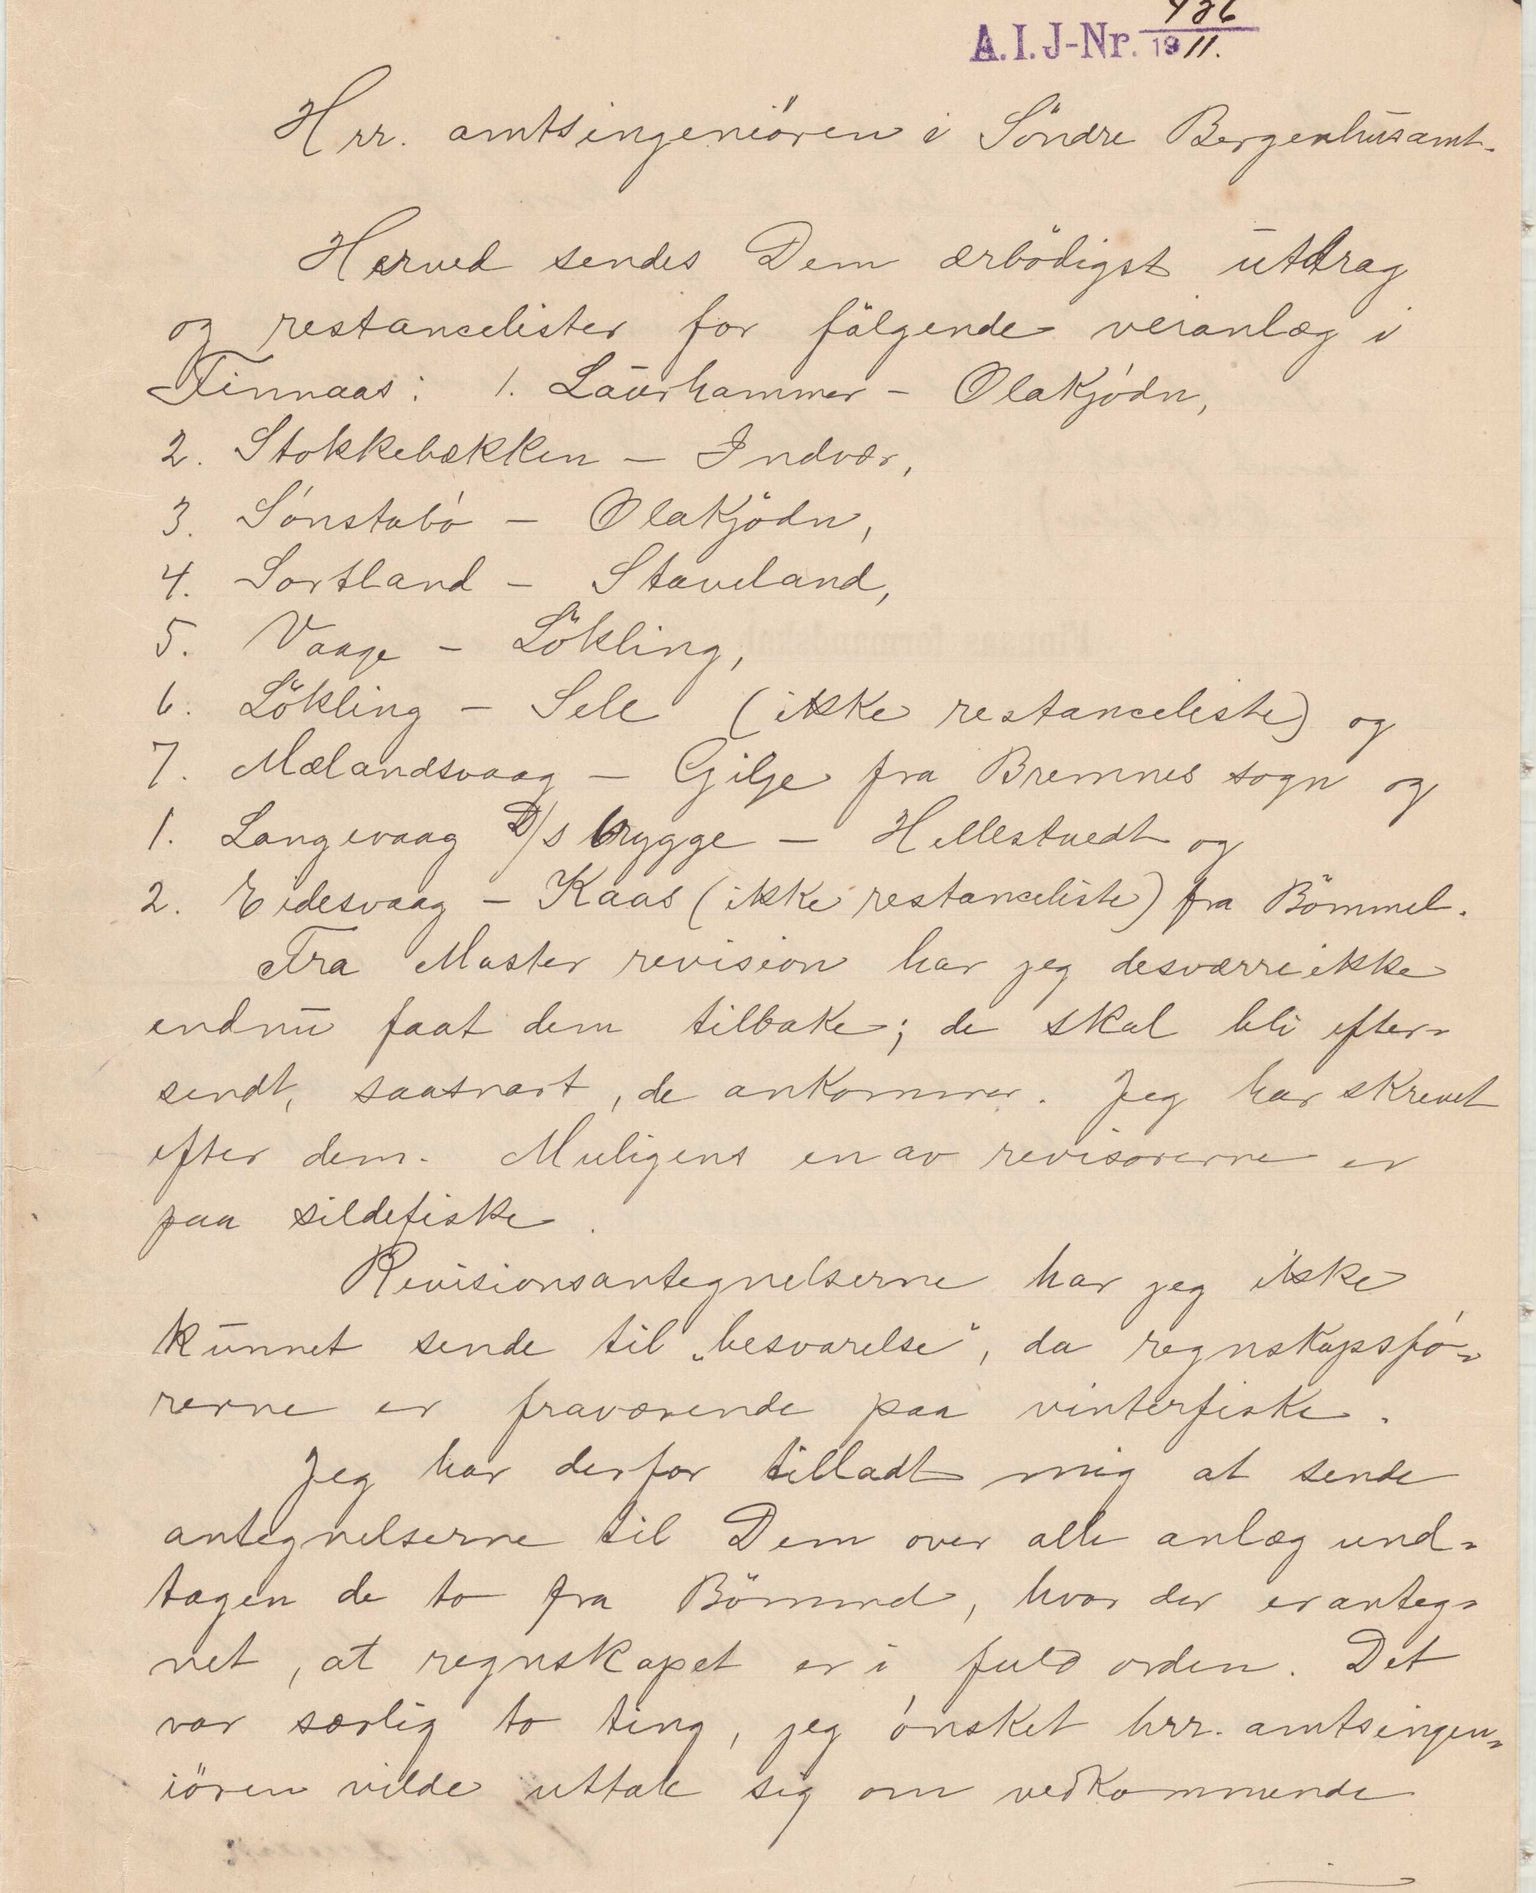 A.I.J-Nr. 426/1911.
Hrr. amtsingeniören i Söndre Bergenhusamt.
Herved sendes Dem ærbödigst utdrag
og restancelister for fölgende veianlæg i
Finnaas: 1. Laurhammer – Olakjödn,
2. Stokkebækken – Indvær,
3. Sónstabó – Olakjödn,
4. Sortland – Staveland,
5. Vaage – Lökling,
6. Lökling – Sele (ikke restanceliste) og
7. Mælandsvaag – Gilje fra Bremnes sogn og
1. Langevaag D/S brygge – Hellestvedt og
2. Eidesvaag – Kaas (ikke restanceliste) fra Bömmel.
Fra Moster revision har jeg desværre ikke
endnu faat dem tilbake; de skal bli efter-
sendt, saasnart, de ankommer. Jeg har skrevet
efter dem. Muligens en av revisorerne er
paa sildefiske.
Revisionsantegnelserne har jeg ikke
kunnet sende til „besvarelse", da regnskapsfó-
rerne er fraværende paa vinterfiske.
Jeg har derfor tilladt mig at sende
antegnelserne til Dem over alle anlæg und-
tagen de to fra Bömmel, hvor der er anteg-
net, at regnskapet er i fuld orden. Det
var særlig to ting, jeg ónsket hrr. amtsingen-
iören vilde uttale sig om vedkommende